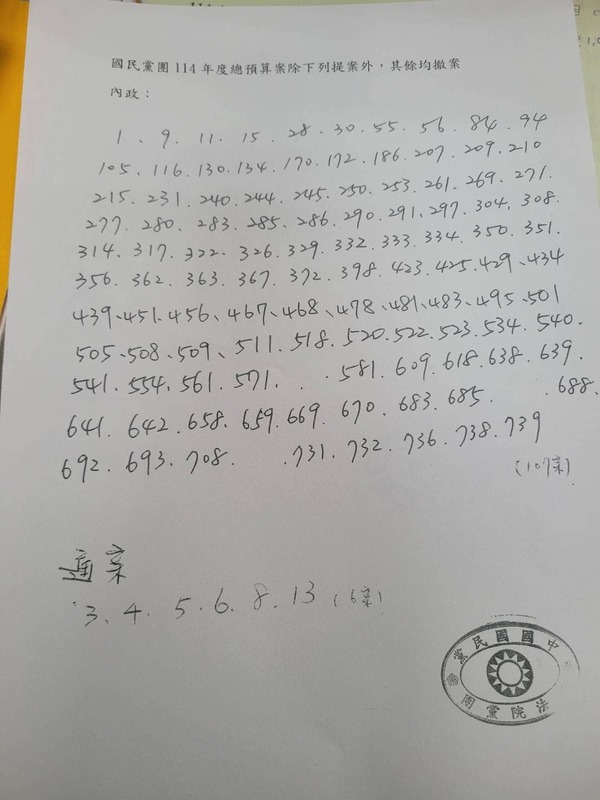 國民黨團114年度總預算案除下列提案外，其餘均撤案
內政：
1、9、11、15、28、30、55、56、84、94
105、116、130、134、170、172、186、207、209、210
215、231、240、244、245、250、253、261、269、271、
277、280、283、285、286、290、291、297、304、308、
314、317、322、326、329、332、333、334、350、351、
356、362、363、367、372、398、423、425、429、434
439、451、456、467、468、478、481、483、495、501
505、508、509、511、518、520、522、523、534、540、
541、554、561、571、、581、609、618、638、639、
641、642、658、659、669、670、683、685、、688、
692、693、708、、731、732、736、738、739
(107案)
通案
3、4、5、6、8、13(6案)
中國國民黨
法院黨團